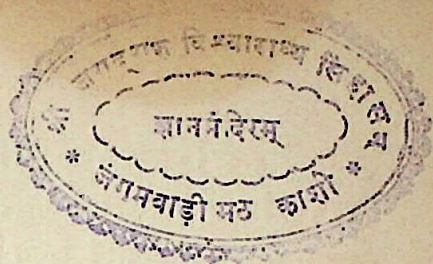 श्री जगद्गुरु विश्वाराध्य विद्यालय
ज्ञानमंदिरम्
* जंगमवाड़ी मठ काशी *